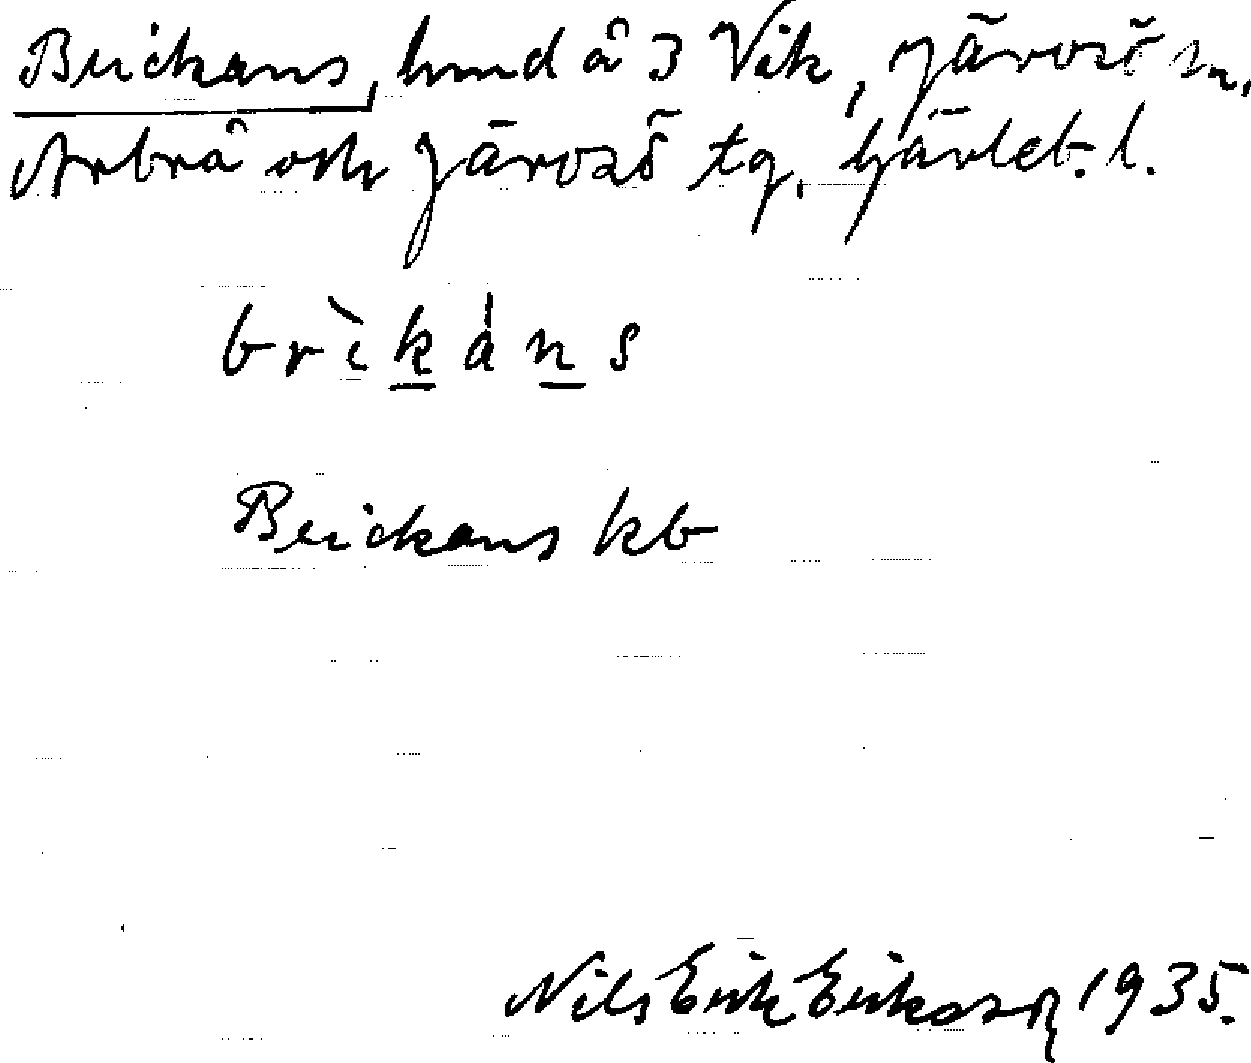 Brickans, hmd å 3 Vik, Järvsö sn,
Arbrå och Järvsö tg. Gävleb. l.
brìkáns
Brickans kb
Nils Erik Eriksson 1935.